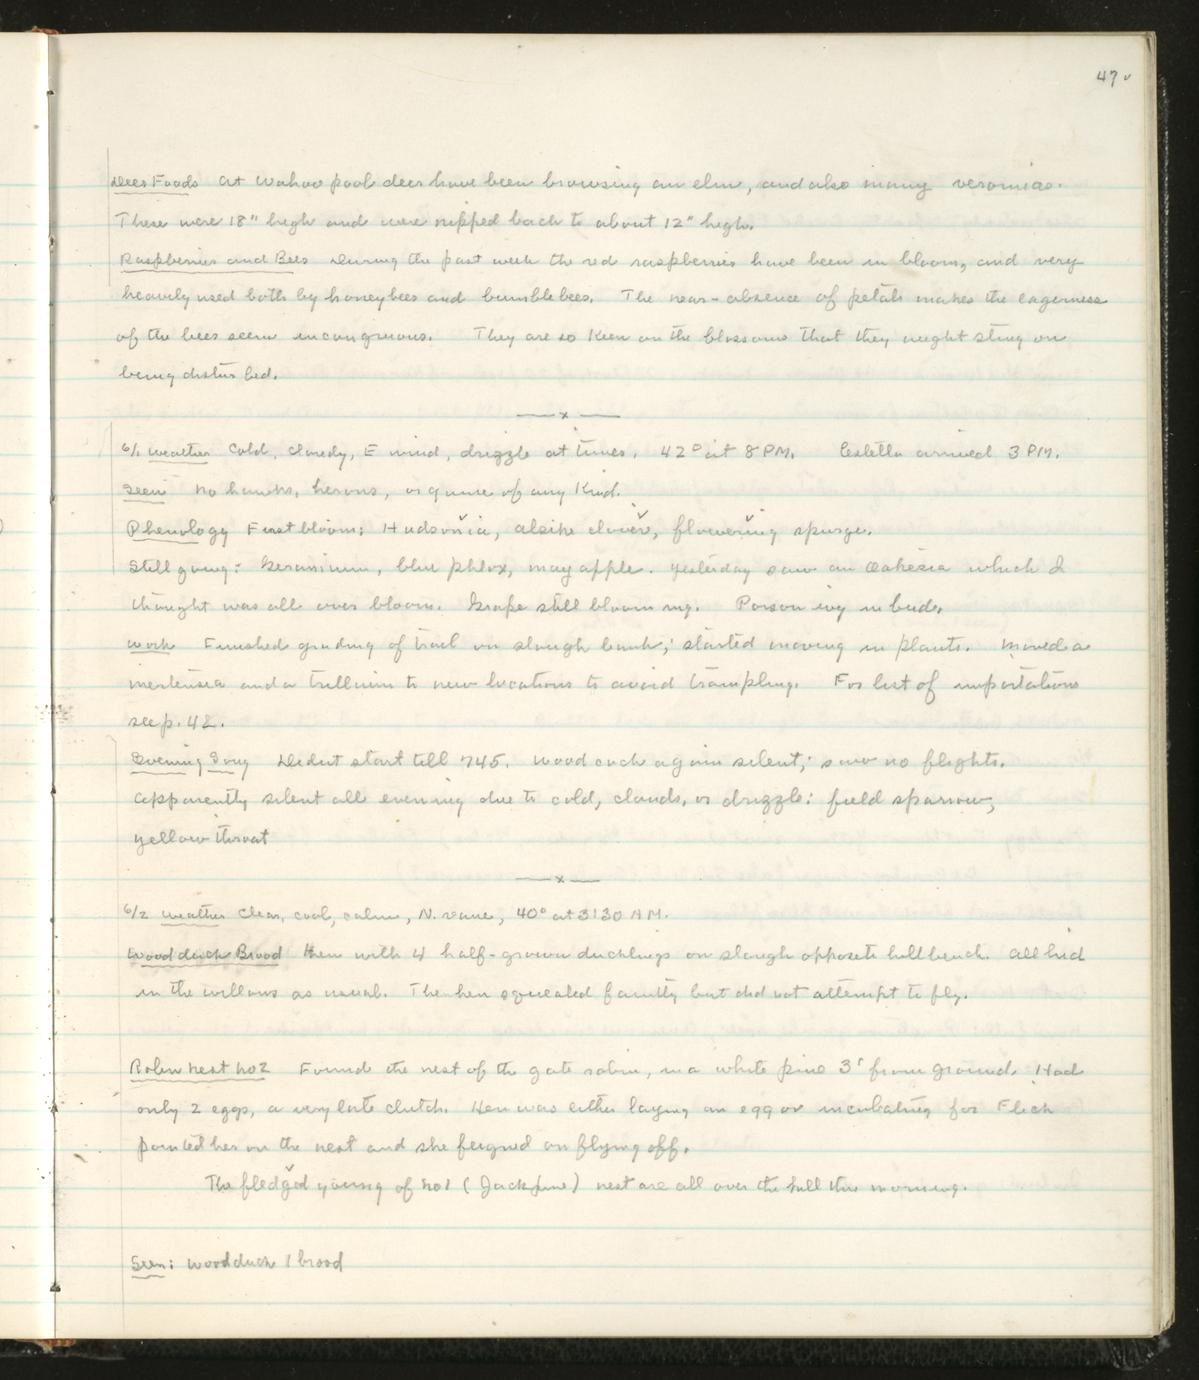 47
Deer Foods At Wahoo pool deer have been browsing on elm, and also many veronias.
These were 18" high and were nipped back to about 12" high.
Raspberries and Bees During the past week the red raspberries have been in bloom, and very
heavily used both by honeybees and bumblebees. The near-absence of petals makes the eagerness
of the bees seem incongruous. They are so keen on the blossoms that they might sting on
being disturbed.
x
6/1 Weather Cold, cloudy, E wind, drizzle at times. 42° at 8 PM. Estella arrived 3 PM.
Seen No hawks, herons, or game of any kind.
Phenology First bloom: Hudsonia, alsike clover, flowering spurge.
Still going: Geranium, blue phlox, may apple. Yesterday saw an Oakesia which I
thought was all over bloom. Grape still blooming. Poison ivy in buds.
Work Finished grading of trail on slough bank; started moving in plants. Moved a
mertensia and a trillium to new locations to avoid trampling. For list of importations
see p. 42.
Evening Song Didnt start till 745. Woodcock again silent; saw no flights.
Apparently silent all evening due to cold, clouds, or drizzle: field sparrow,
yellowthroat
x
6/2 Weather Clear, cool, calm, N. vane, 40° at 3:30 AM.
Woodduck Brood Hen with 4 half-grown ducklings on slough opposite hill bench. All hid
in the willows as usual. The hen squealed faintly but did not attempt to fly.
Robin Nest No 2 Found the nest of the gate robin, in a white pine 3' from ground. Had
only 2 eggs, a very late clutch. Hen was either laying an egg or incubating for Flick
pointed her on the nest and she feigned on flying off.
The fledged young of No 1 (Jackpine) nest are all over the hill this morning.
Seen: Woodduck 1 brood